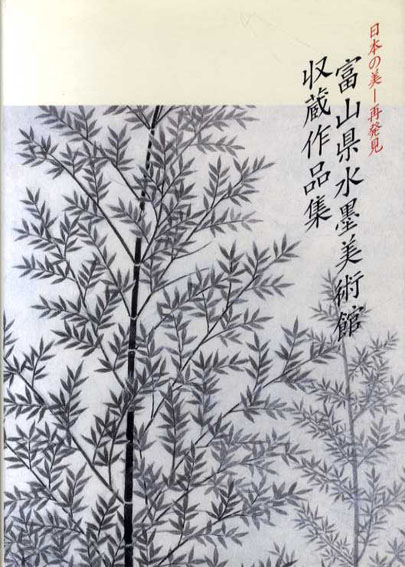 日本の美—再発見
富山県水墨美術館
収蔵作品集